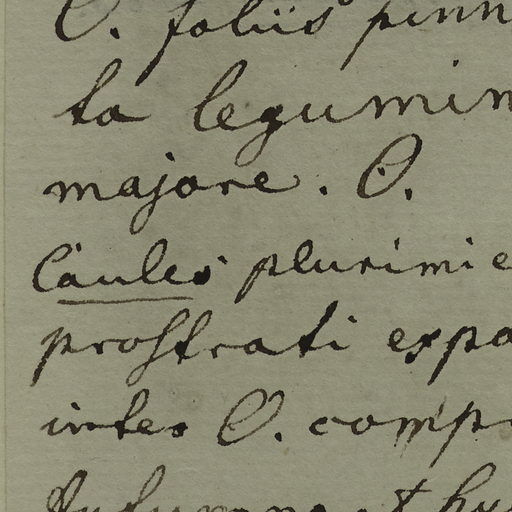 O. foliis pinn
ta legumin
majore. O.
Caules plurimi e
prostrati expa
inter O. comp